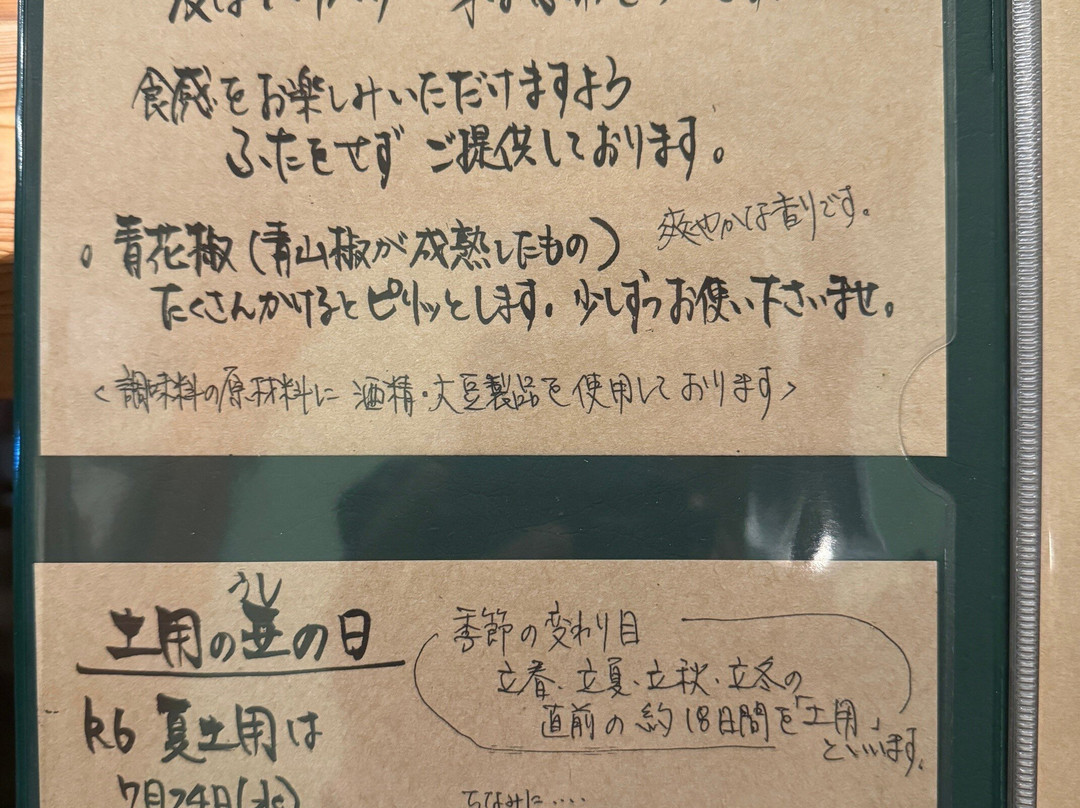 食感をお楽しみいただけますよう
ふたをせず ご提供しております。
。青花椒(青山椒が成熟したもの) 爽やかな香りです。
たくさんかけるとピリッとします。少しずつお使い下さいませ。
<調味料の原材料に 酒精・大豆製品を使用しております>
うし
土用の丑の日
季節の変わり目
立春・立夏・立秋・立冬の
直前の約18日間を「土用」
といいます。
R6 夏土用は
7月24日(水)
ちなみに‥‥